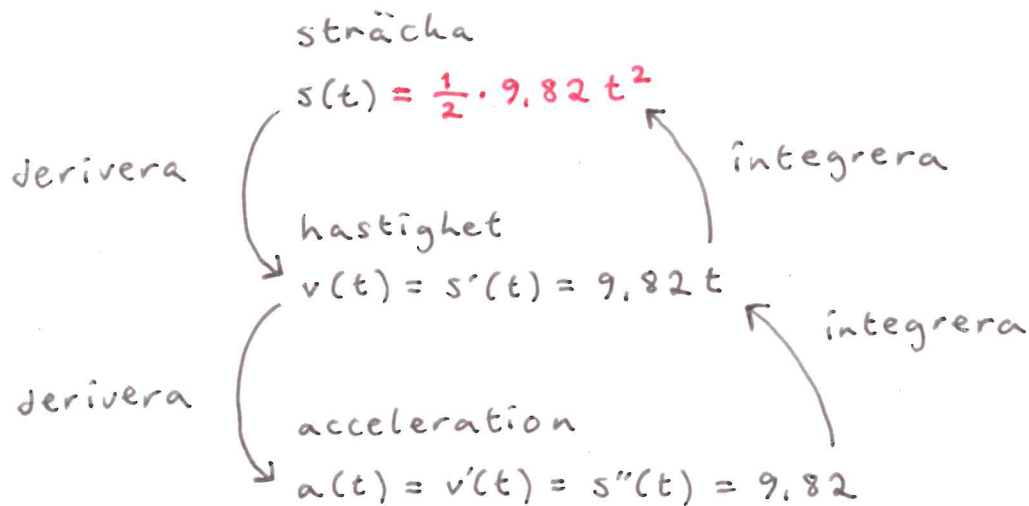 sträcka
s(t) = 1/2 · 9,82 t²
derivera
integrera
hastighet
v(t) = s'(t) = 9,82 t
integrera
derivera
acceleration
a(t) = v'(t) = s''(t) = 9,82